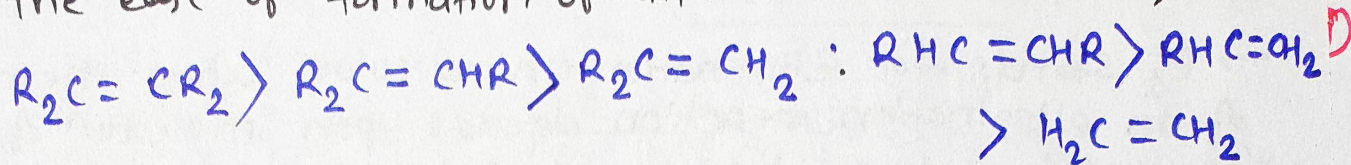 the ease of formation of
R₂C = CR₂ > R₂C = CHR > R₂C = CH₂ : RHC = CHR > RHC=CH₂ D
> H₂C = CH₂